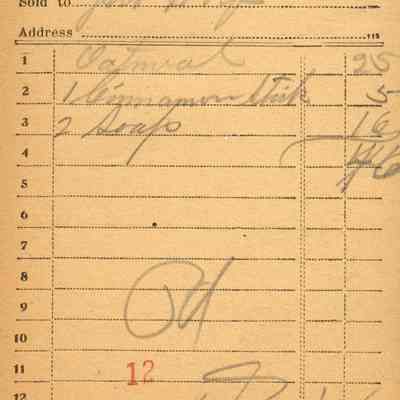 Sold to
Address
1 Oatmeal 25
2 1 Cinnamon Stick 5
3 2 Soap 16
4 46
5
6
7
8
9
10
11 12
12